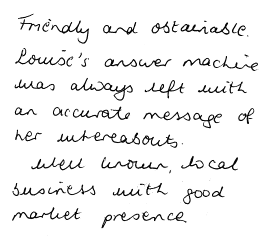 Friendly and obtainable.
Louise's answer machine
was always left with
an accurate message of
her whereabouts.
Well known, local
business with good
market presence